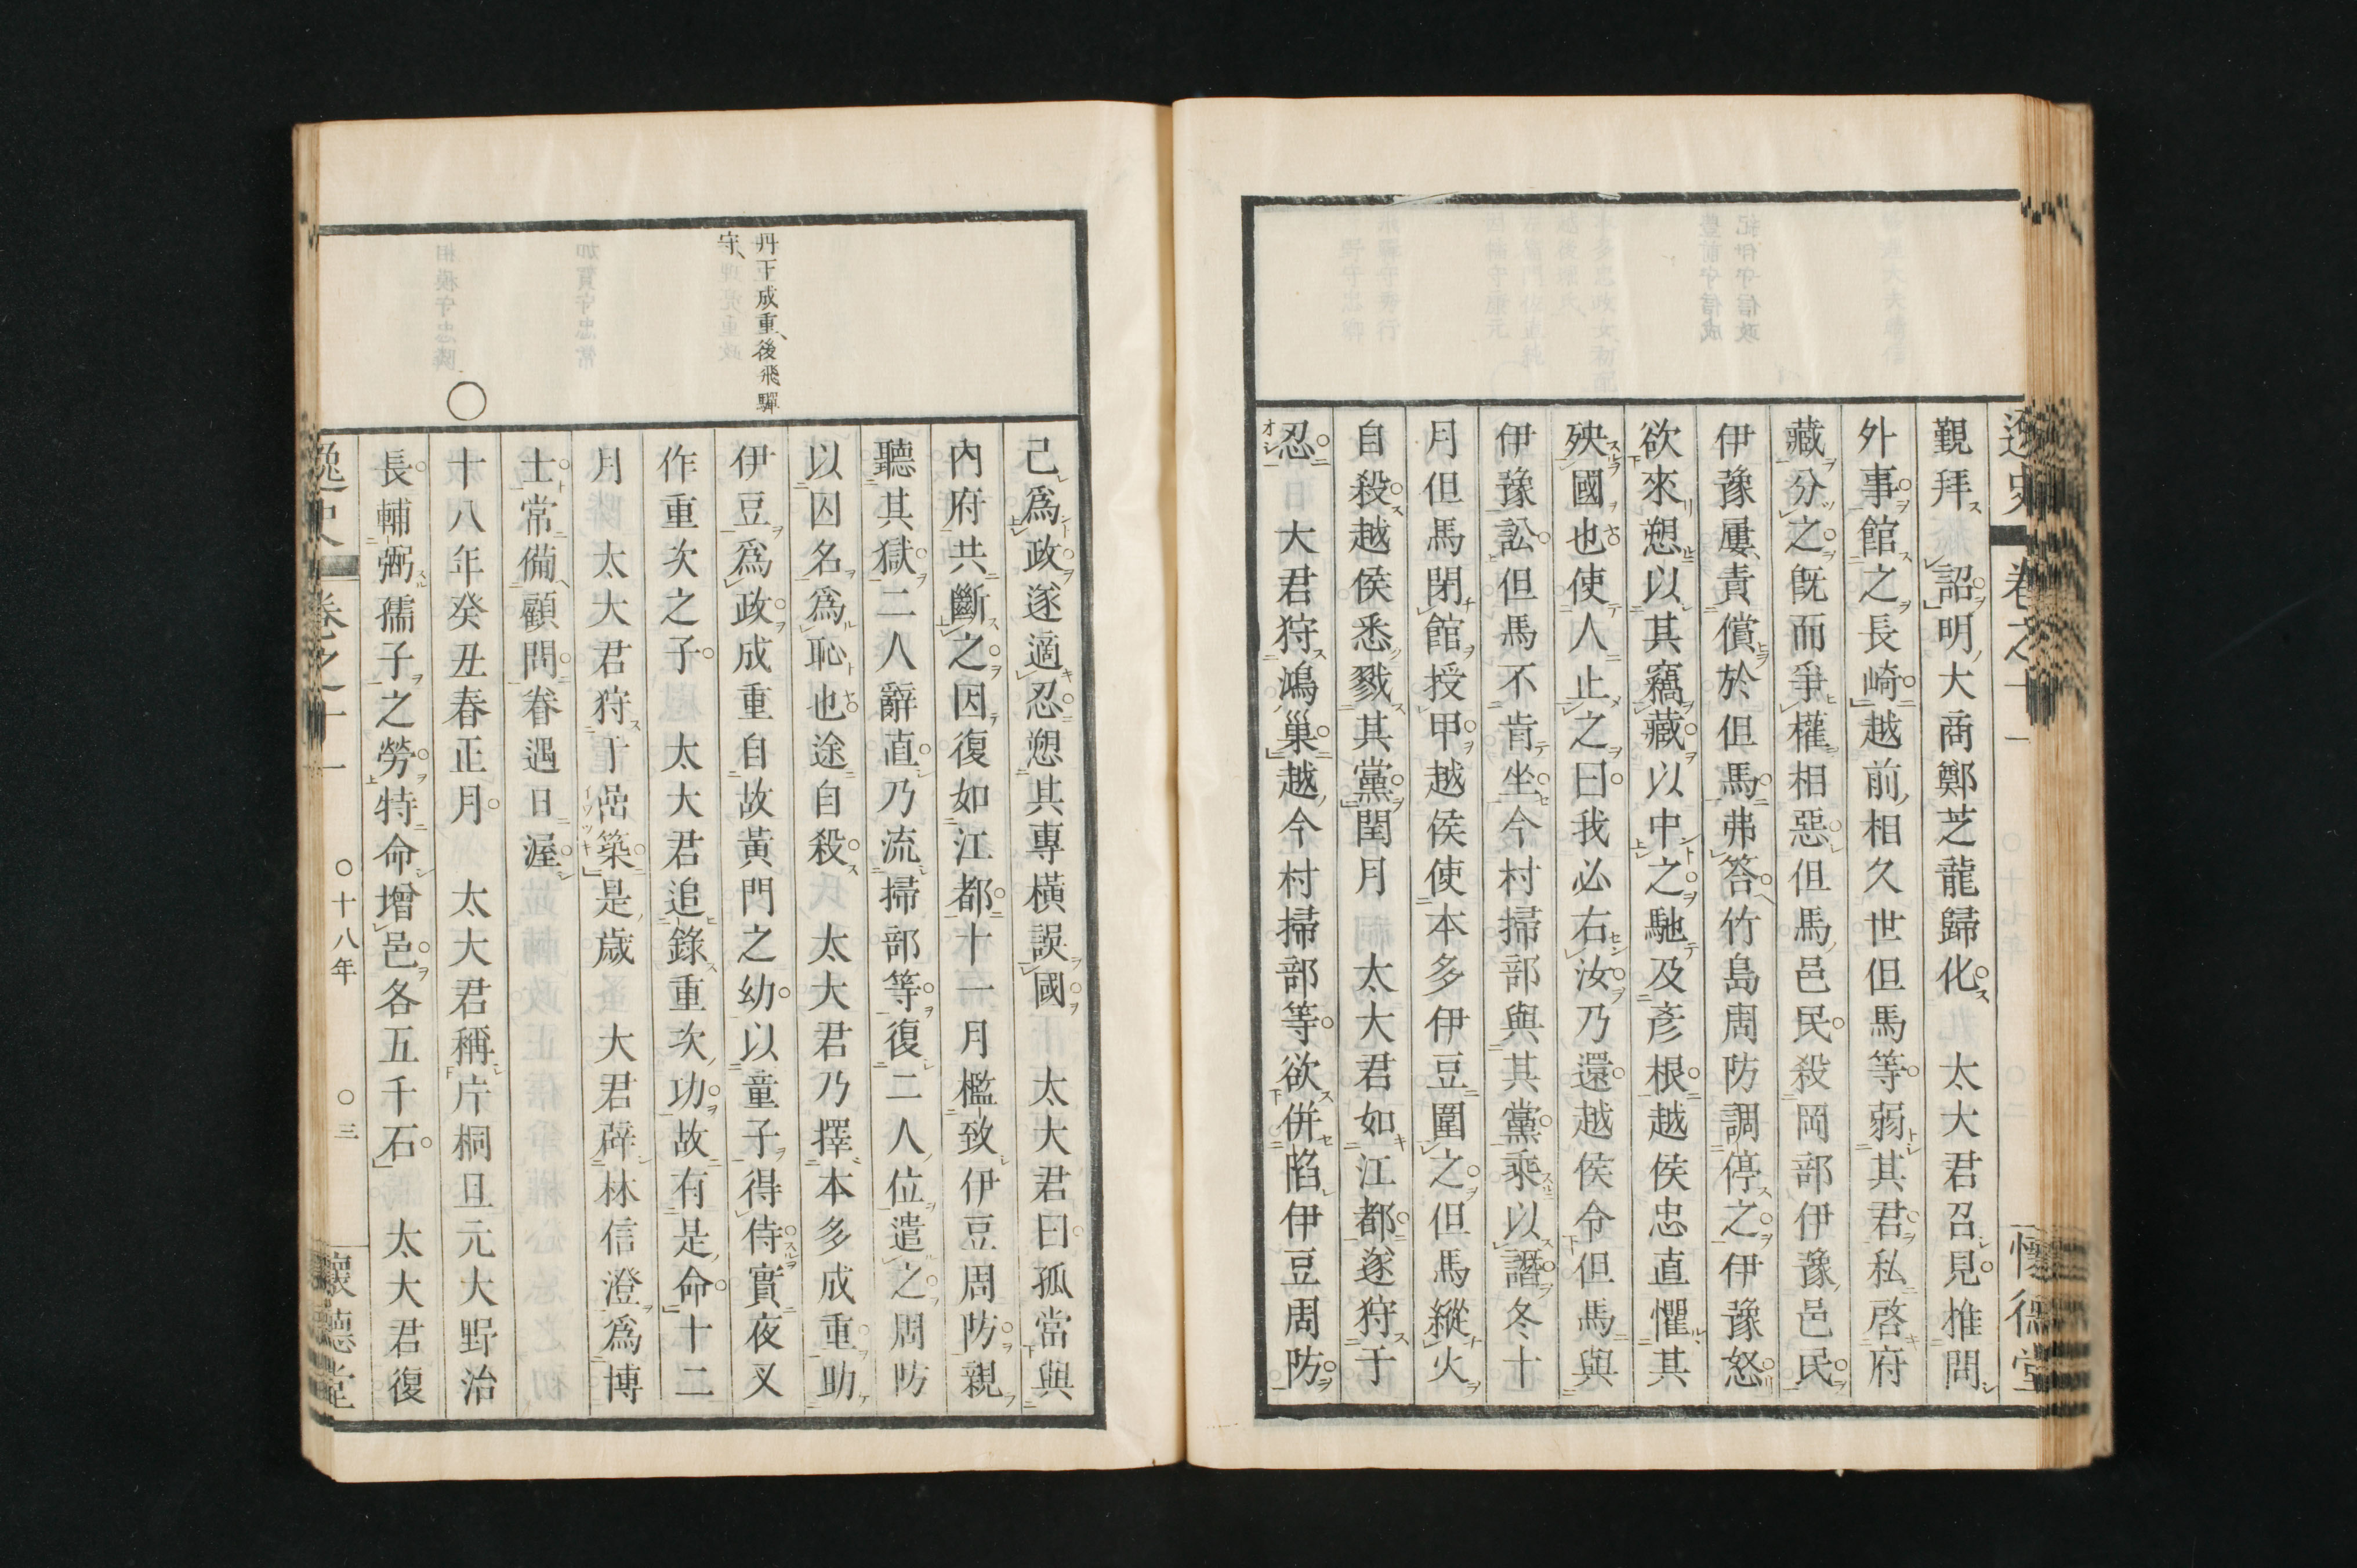 逸史 卷之十一 懷德堂
覲拜詔明大商鄭芝龍歸化 太大君召見推問
外事館之長崎越前相久世但馬等弱其君私啓府
藏分之既而爭權相惡但馬邑民殺岡部伊豫邑民
伊豫屢責償於但馬弗答竹島周防調停之伊豫怒
欲來愬以其竊藏以中之馳及彥根越侯忠直懼其
殃國也使人止之曰我必右汝乃還越侯令但馬與
伊豫訟但馬不肯坐今村掃部與其黨乘以譖冬十
月但馬閉館授甲越侯使本多伊豆圍之但馬縱火
自殺越侯悉戮其黨閏月 太大君如江都遂狩于
忍 大君狩鴻巢越今村掃部等欲併陷伊豆周防
丹下成重後飛驒
守
己爲政遂適忍愬其專橫誤國 太大君曰孤當與
內府共斷之因復如江都十一月檻致伊豆周防親
聽其獄二人辭直乃流掃部等復二人位遣之周防
以囚名爲恥也途自殺 太大君乃擇本多成重助
伊豆爲政成重自故黃門之幼以童子得侍實夜叉
作重次之子 太大君追錄重次功故有是命十二
月 太大君狩于嵒築是歲 大君辟林信澄爲博
士常備顧問眷遇日渥
十八年癸丑春正月 太大君稱片桐且元大野治
長輔弼孺子之勞特命增邑各五千石 太大君復
逸史 卷之十一 ○十八年 ○三 懷德堂